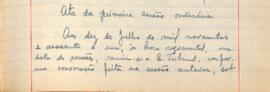 Ata da primeira sessão ordinária
Aos dez de Julho de mil novecentos
e sessenta e um, à hora regimental, na
sala de sessões, reuniu-se o E. Tribunal, confor-
me convocação feita na sessão anterior, sob